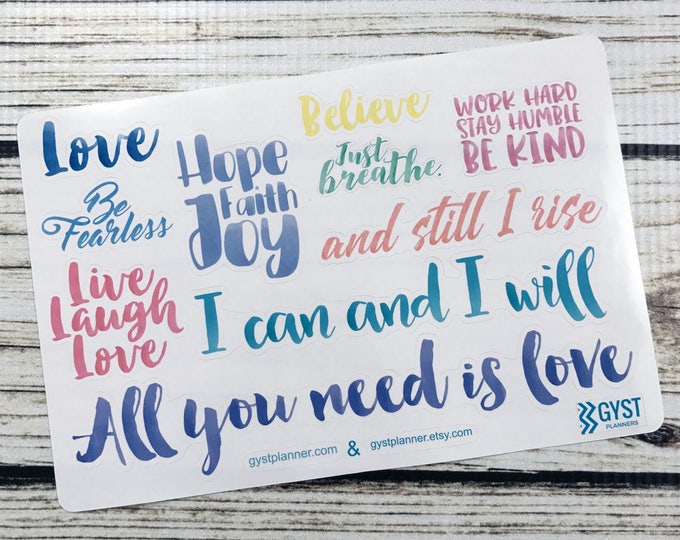 Love
Hope
Faith
Joy
Believe
WORK HARD
STAY HUMBLE
BE KIND
Just
breathe.
Be
Fearless
and still I rise
Live
Laugh
Love
I can and I will
All you need is love
GYST
PLANNERS
gystplanner.com & gystplanner.etsy.com